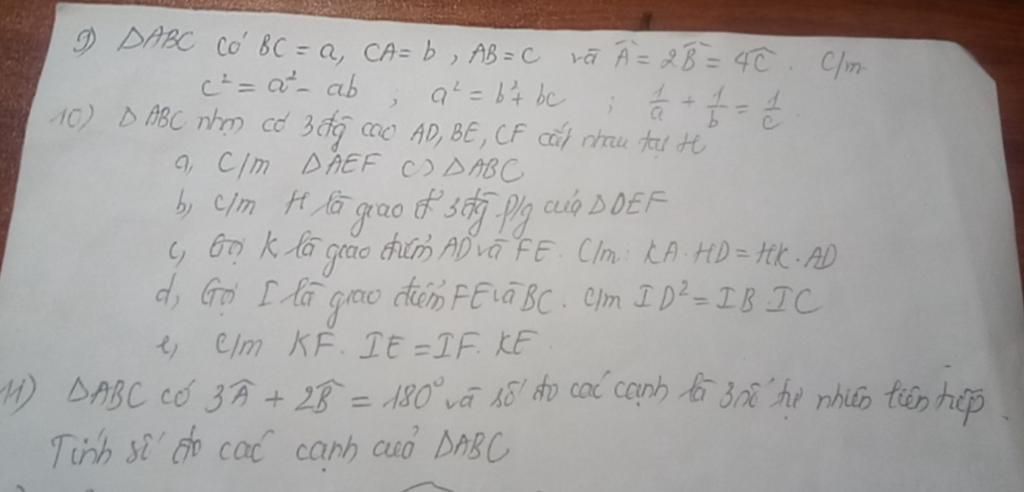 9) ΔABC có BC = a, CA = b, AB = c và Â = 2B̂ = 4Ĉ. C/m
c² = a² - ab ; a² = b² + bc ; 1/a + 1/b = 1/c.
10) ΔABC nhọn có 3 đg cao AD, BE, CF cắt nhau tại H
a, C/m ΔAEF ∽ ΔABC
b, c/m H là giao đ' 3 đg p/g của ΔDEF
c, Gọi K là giao điểm AD và FE. C/m: KA.HD = HK.AD
d, Gọi I là giao điểm FE và BC. c/m ID² = IB.IC
e, c/m KF.IE = IF.KE
11) ΔABC có 3Â + 2B̂ = 180° và số đo các cạnh là 3 số tự nhiên liên tiếp.
Tính số đo các cạnh của ΔABC